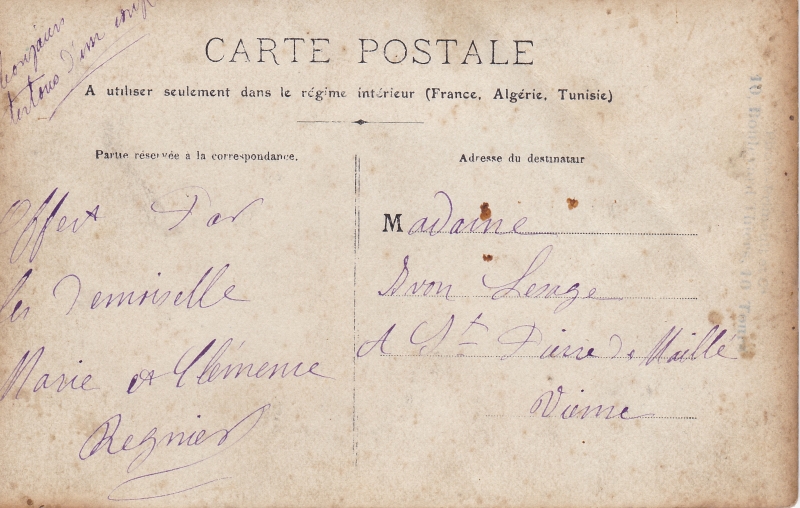 bonjour
tertous d'un coup
CARTE POSTALE
A utiliser seulement dans le régime intérieur (France, Algérie, Tunisie)
Partie réservée à la correspondance.
Offert Par
les Demoiselle
Marie et Clémence
Regnier
Adresse du destinatair
Madame
Yvon Lesage
A St Pierre de Maillé
Vienne